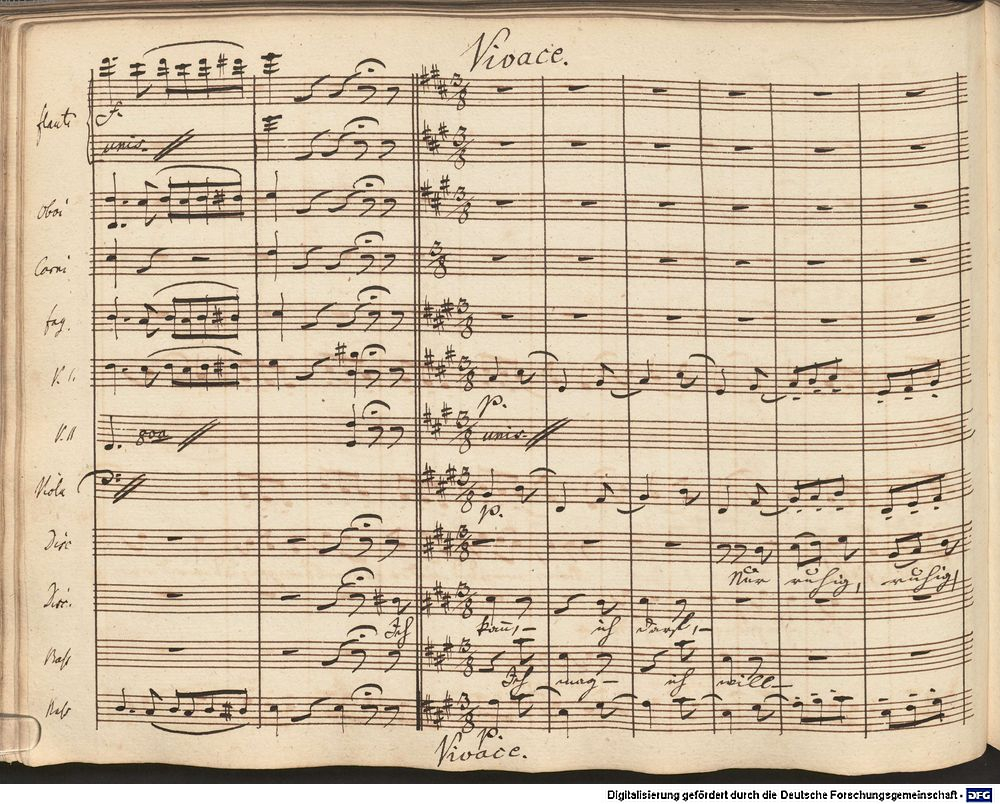 Vivace.
flauti
f.
unis.
Oboi
Corni
fag.
V. I.
p.
V. II
8va
unis.
Viola
p.
Disc
Nur ruhig, ruhig,
Disc.
Ich kann, – ich darf, –
Bass
Ich mag – ich will –
Bass
p.
Vivace.
Digitalisierung gefördert durch die Deutsche Forschungsgemeinschaft - DFG